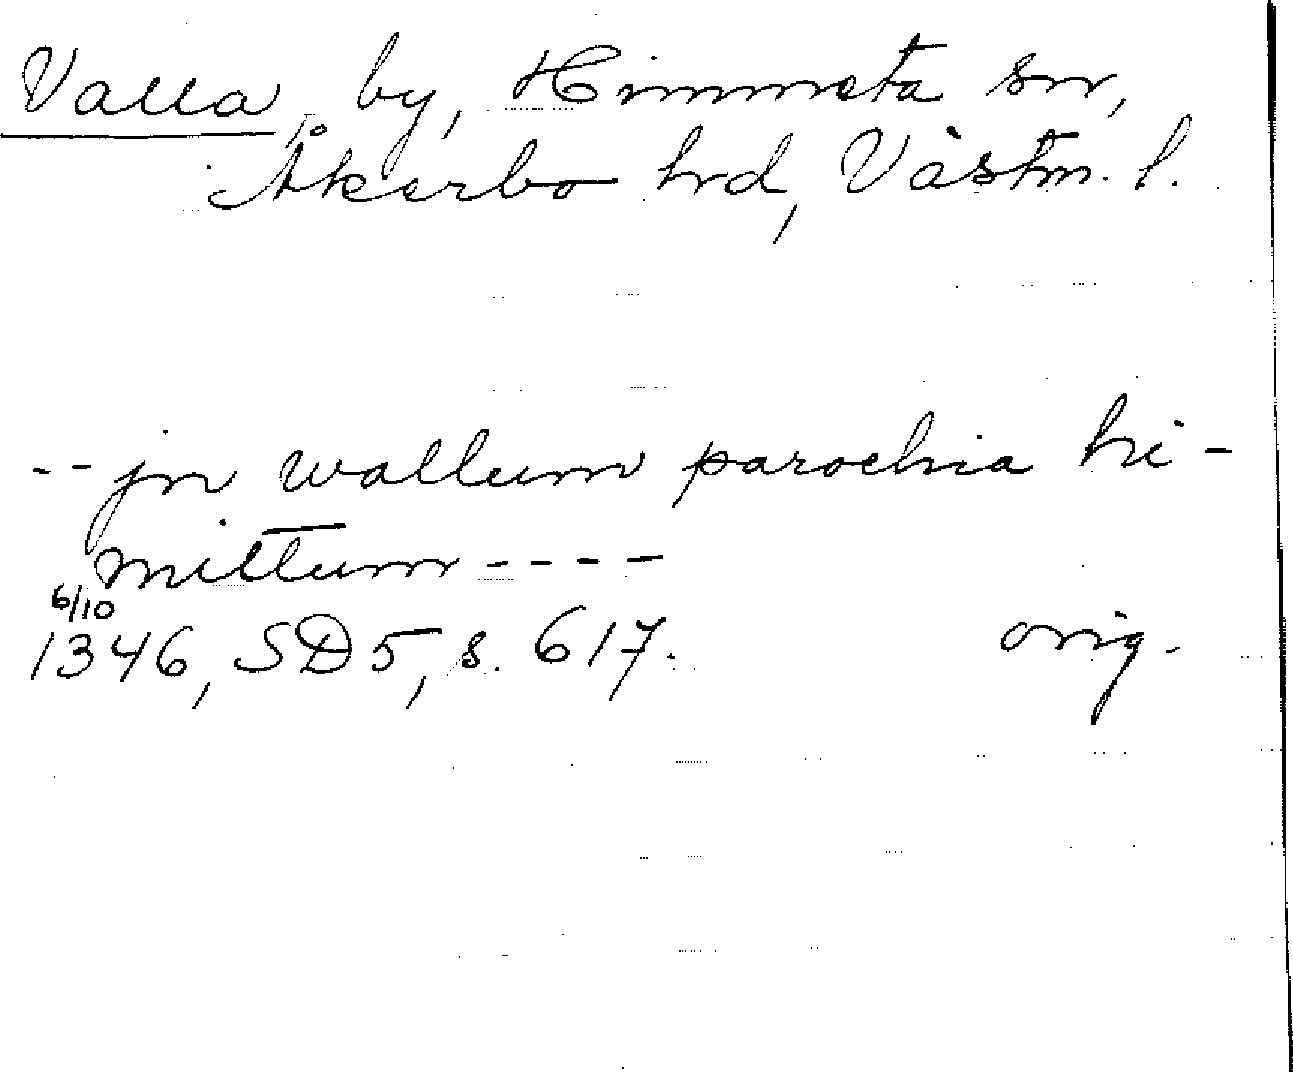 Valla by, Himmeta sn,
Åkerbo hrd, Västm. l.
-- jn wallum parochia hi-
mittum ----
6/10
1346, SD5, s. 617. orig.